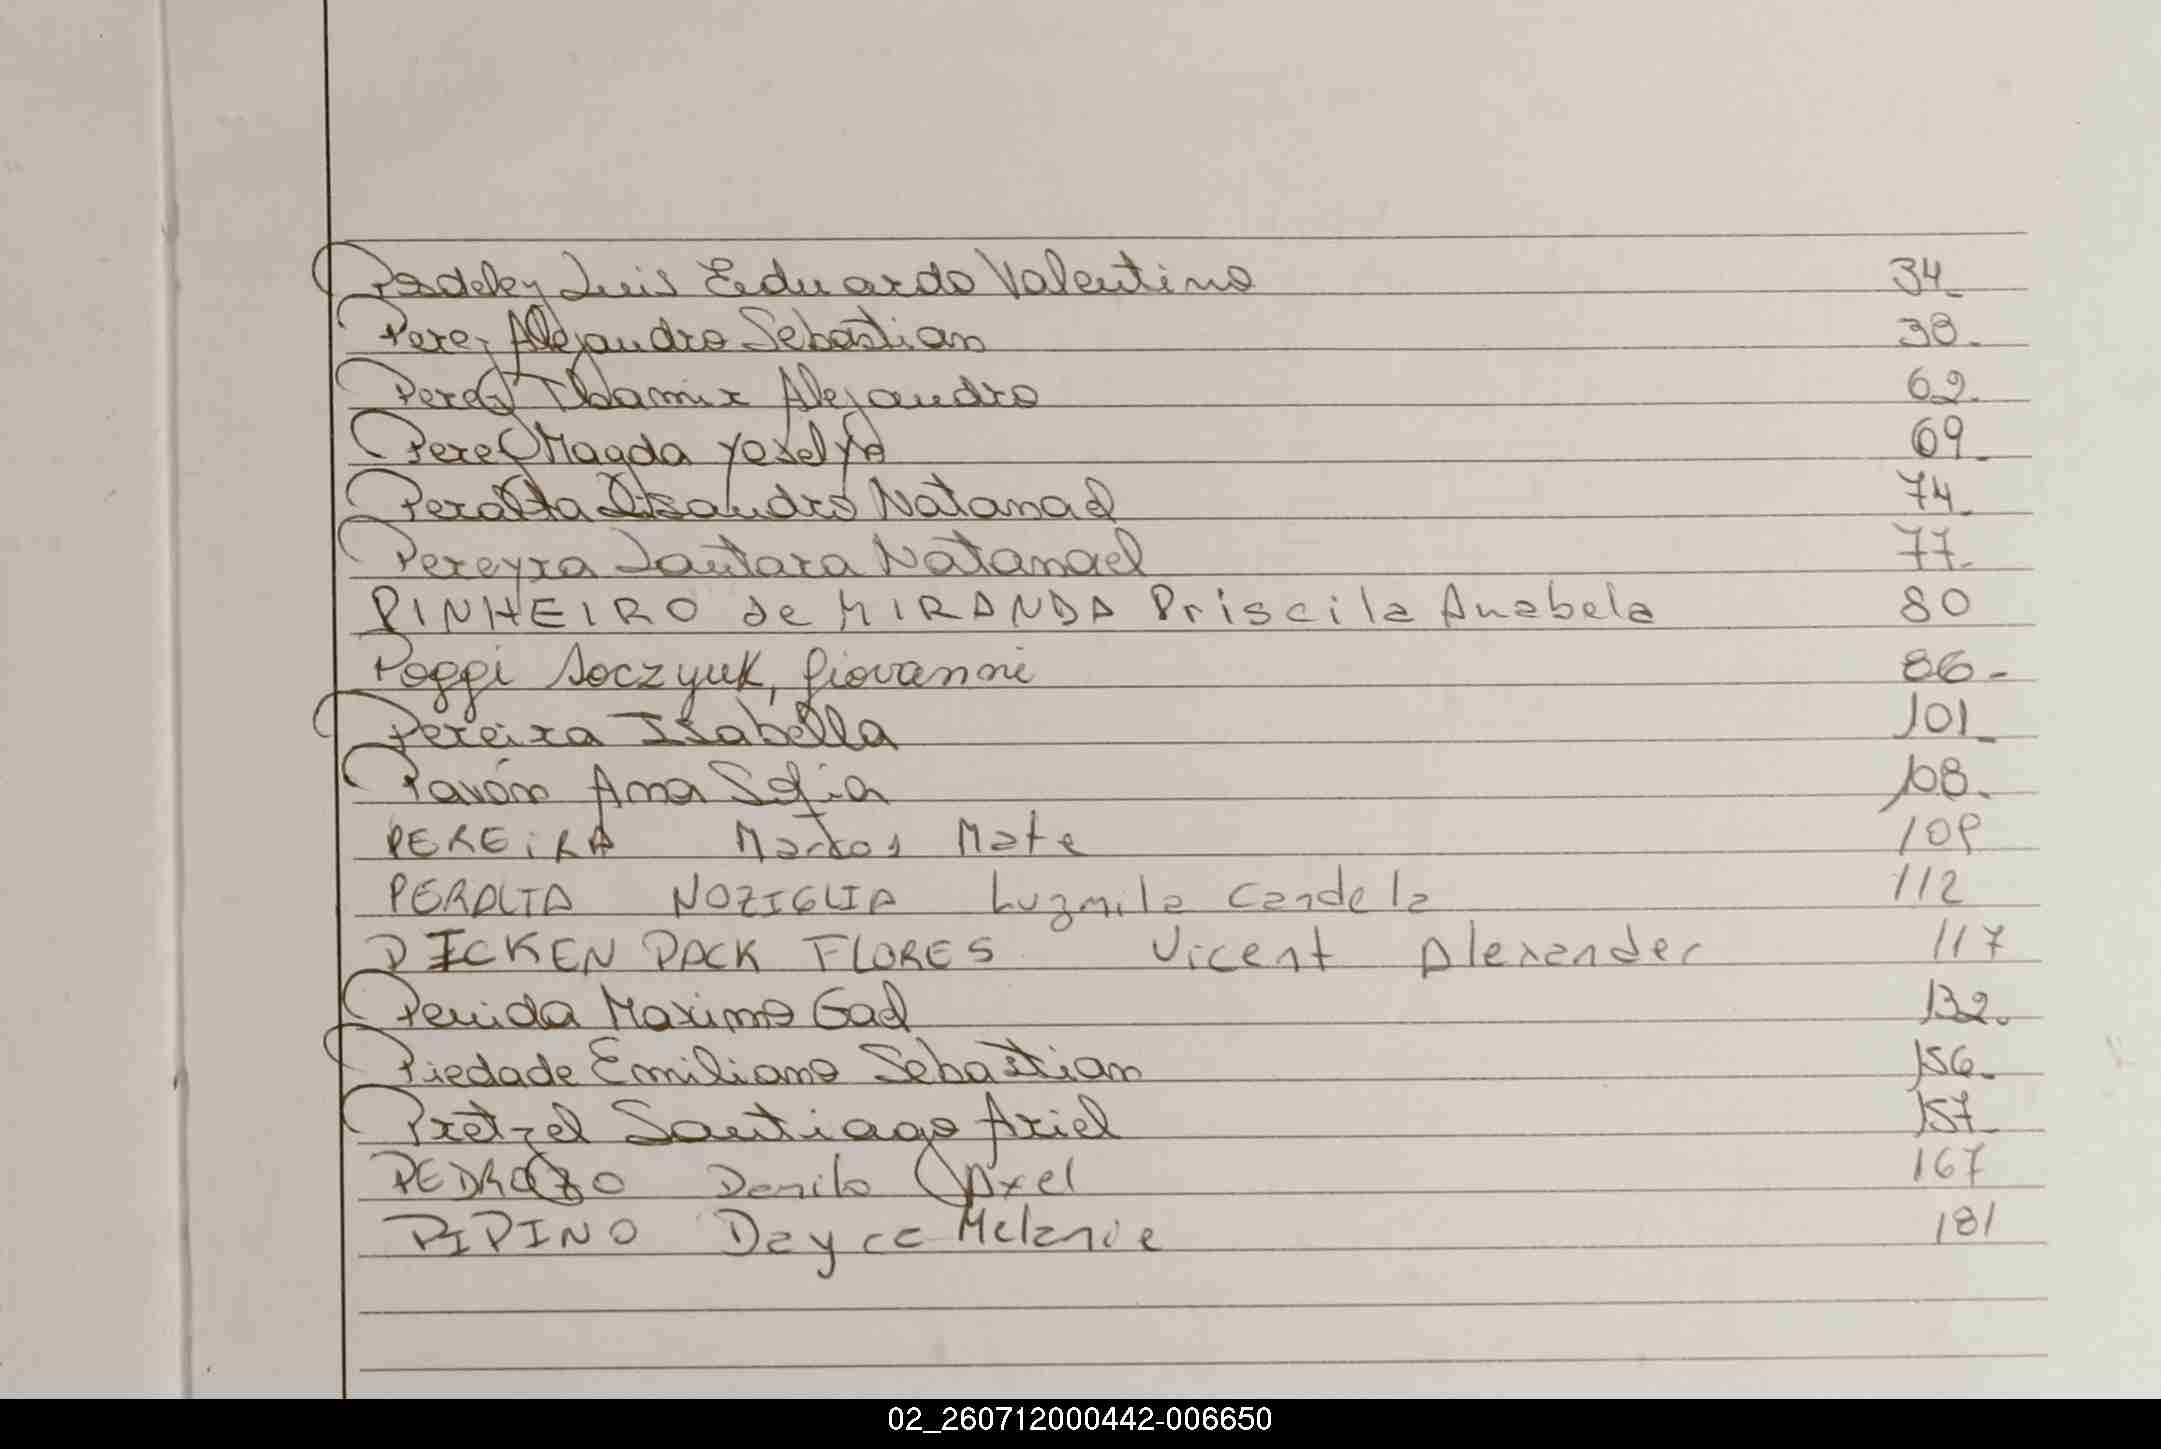 Padeky Luis Eduardo Valentino 34
Perez Alejandro Sebastian 38.
Perez Thamir Alejandro 62.
Perez Magda Yoselyn 69
Peralta Lisandro Natanael 74
Pereyra Lautara Natanael 77.
PINHEIRO de MIRANDA Priscila Anabela 80
Poggi Soczyuk, Giovanni 86-
Pereira Isabella 101
Pavón Ana Sofia 108.
PEREIRA Marcos Mate 109
PERALTA NOZIGLIA Luzmila Candela 112
DICKEN PACK FLORES Vicent Alexander 117
Maximo Gael 132.
Piedade Emiliano Sebastian 156
Pretzel Santiago Ariel 157
PEDROZO Danilo Axel 167
PIPINO Dayce Melanie 181
02_260712000442-006650